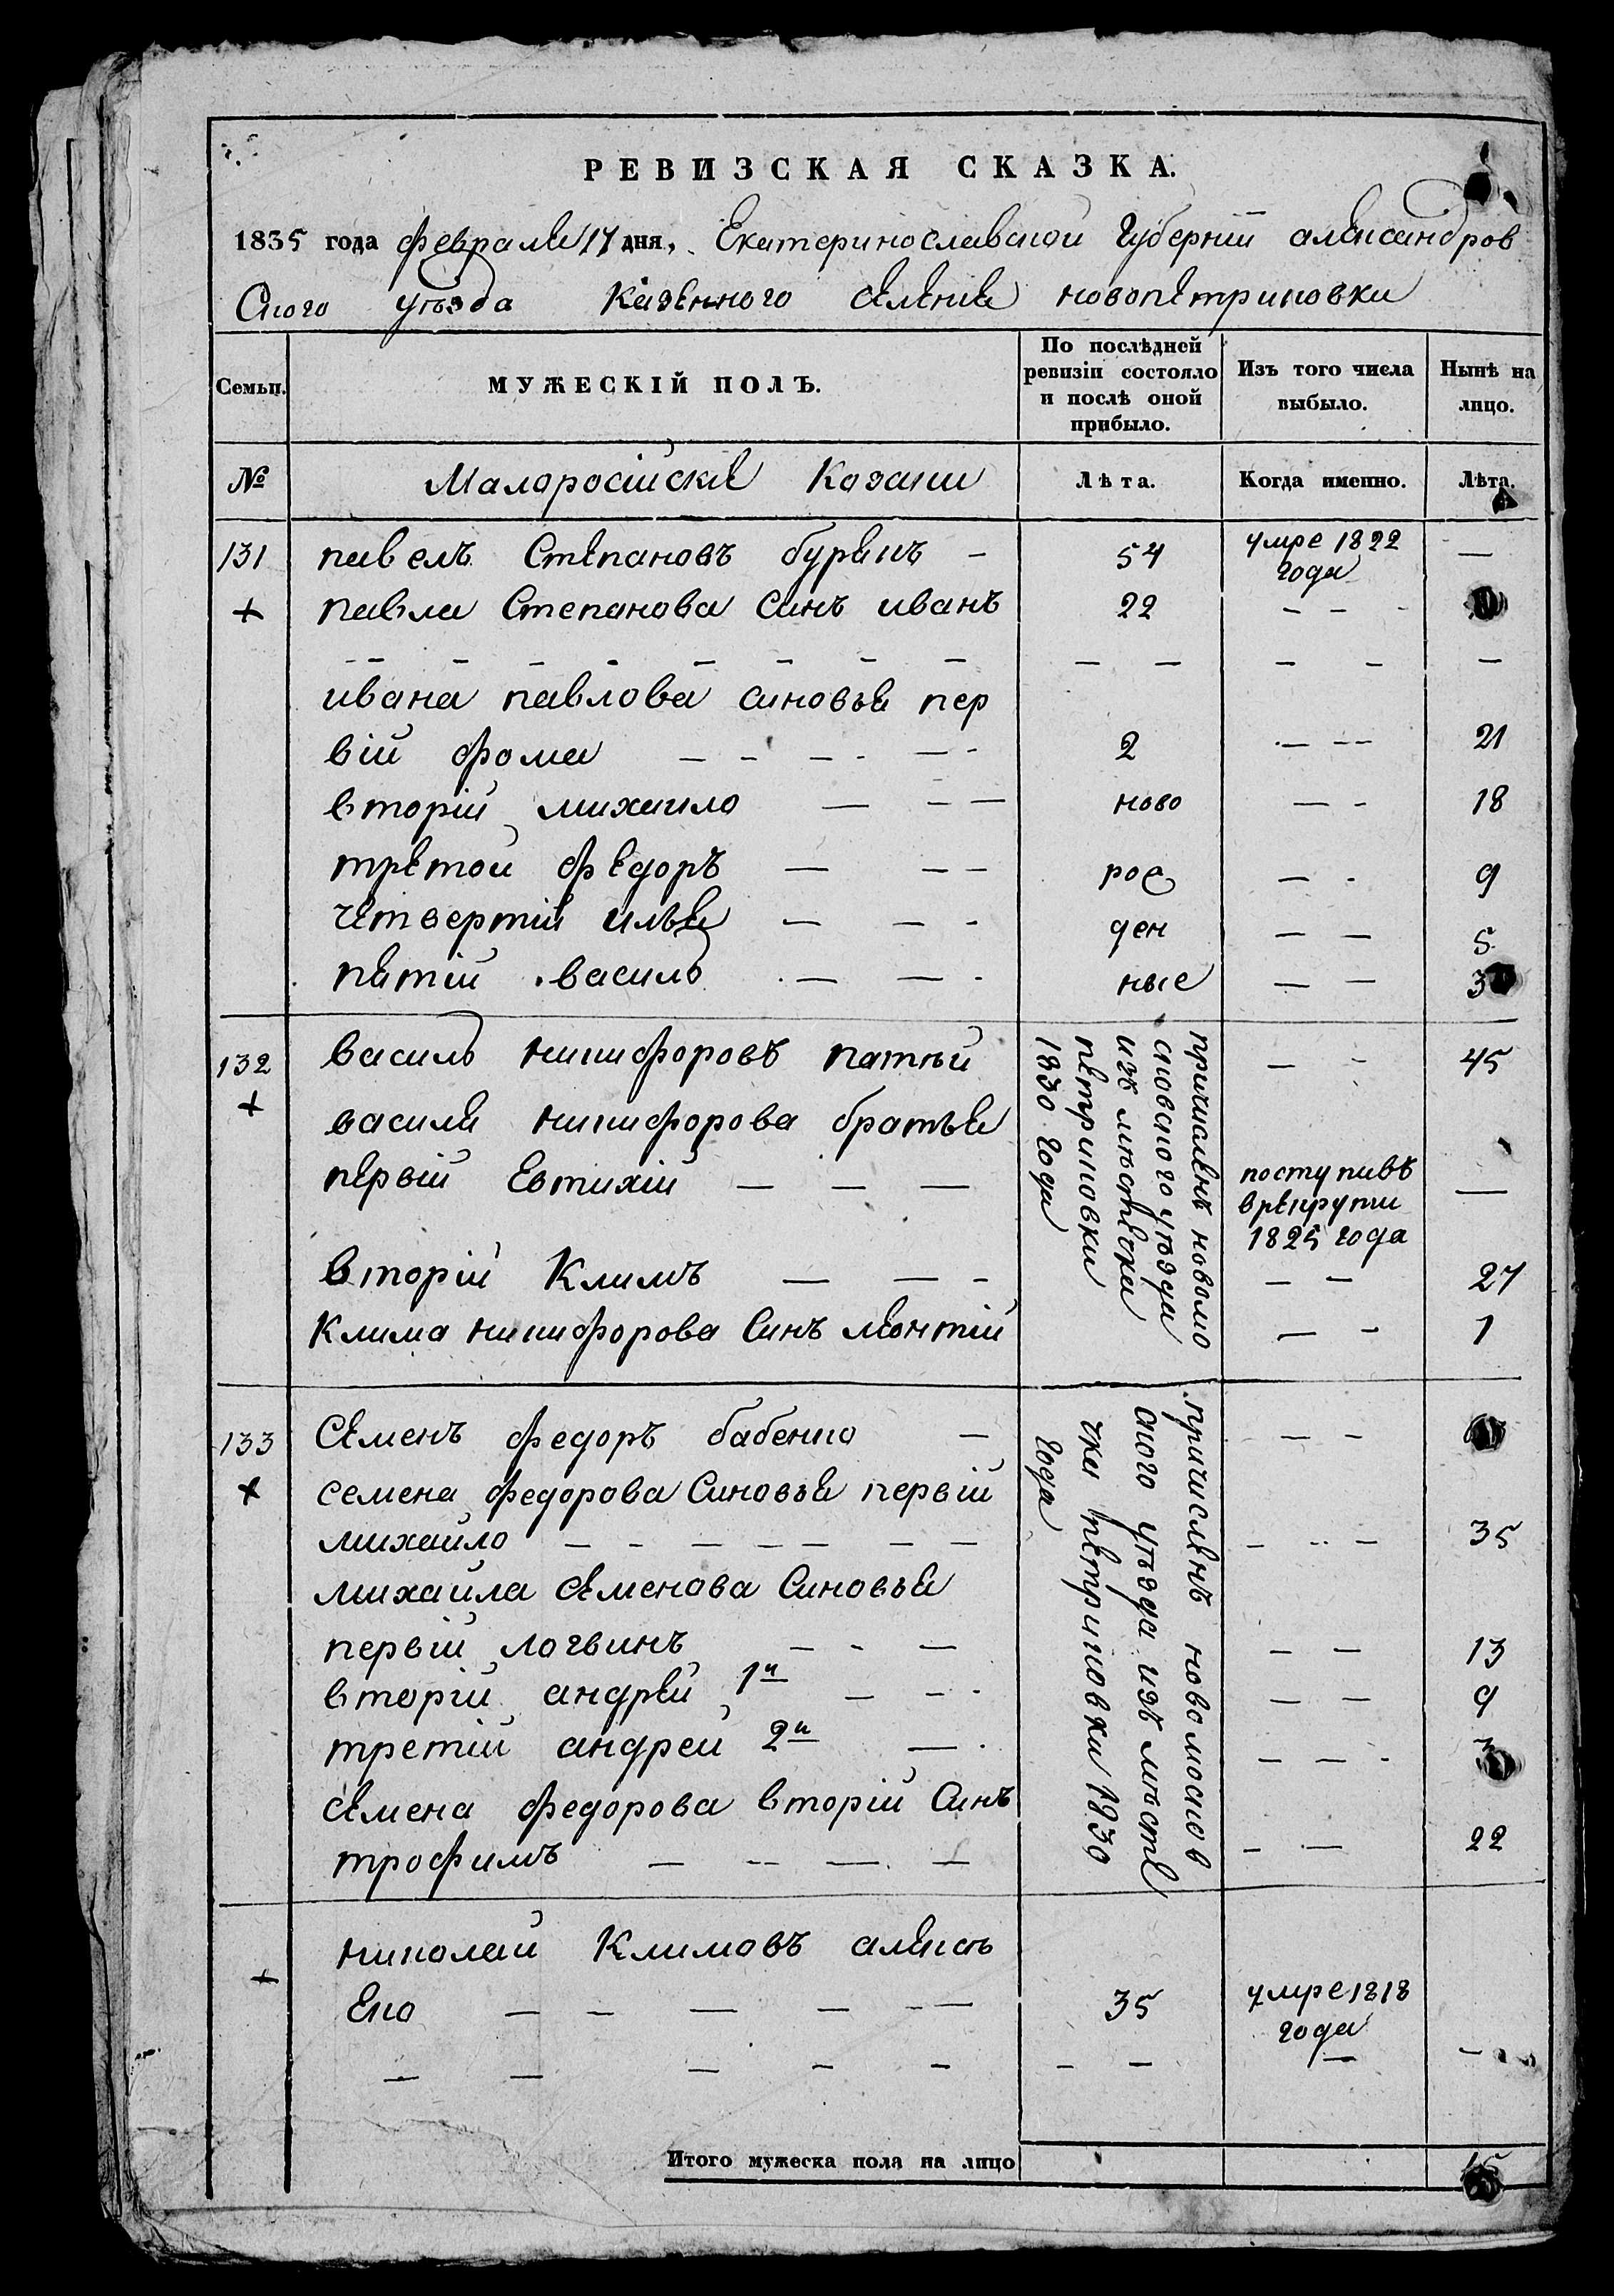 РЕВИЗСКАЯ СКАЗКА.
1835 года февраля 17 дня, Екатеринославской Губернии александров
Ского уѣзда Казенного селения новопетриковки
Семьи.
МУЖЕСКІЙ ПОЛЪ.
По послѣдней
ревизіи состояло
и послѣ оной
прибыло.
Изъ того числа
выбыло.
Нынѣ на
лицо.
№
Малоросійскіе Козаки
Лѣта.
Когда именно.
Лѣта.
131 павелъ Степановъ — 54 умре 1822 —
года
+ павла Степанова Синъ иванъ 22 — —
ивана павлова синовья пер
вій фома 2 — — 21
вторій михайло ново — — 18
третой федоръ рос — — 9
четвертій илья ден — — 5
пятій василь ные — — 3
132 василь никифоровъ — — 45
+ василя никифорова братья
первій Евтихій поступивъ —
в рекрути
1825 года
вторій Климъ — — 27
Клима никифорова Синъ леонтій — — 1
причисленъ новомо
сковского уѣзда
изъ мѣстечка
петриковки
1830 года
133 Семенъ федоръ бабенко — — —
+ семена федорова Синовья первій
михайло — — 35
михайла семенова Синовья
первій логвинъ — — 13
вторій андрей 1й — — 9
третій андрей 2й — — 3
семена федорова вторій Синъ
трофимъ — — 22
причисленъ новомосков
ского уѣзда изъ мѣсте
чка петриковки 1830
года
николай Климовъ алексѣ
+ Енко 35 умре 1818
года
Итого мужеска пола на лицо 15